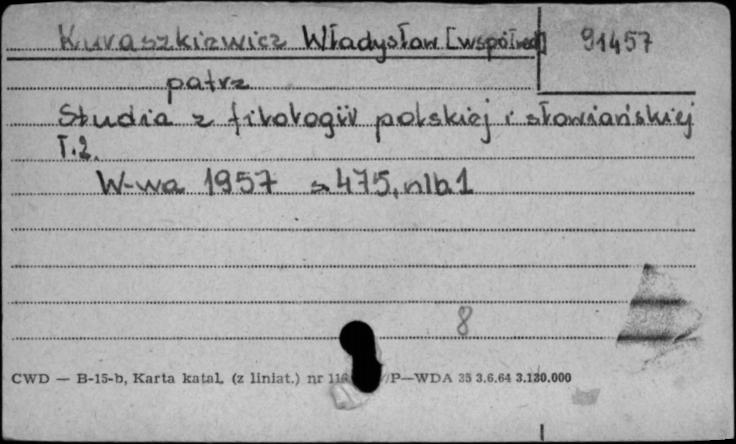 Kuraszkiewicz Władysław [współred] 91457
patrz
Studia z filologii polskiej i słowiańskiej
T.2.
W-wa 1957 s 475, nlb 1
8
CWD — B-15-b, Karta katal. (z liniat.) nr P—WDA 35 3.6.64 3.130.000